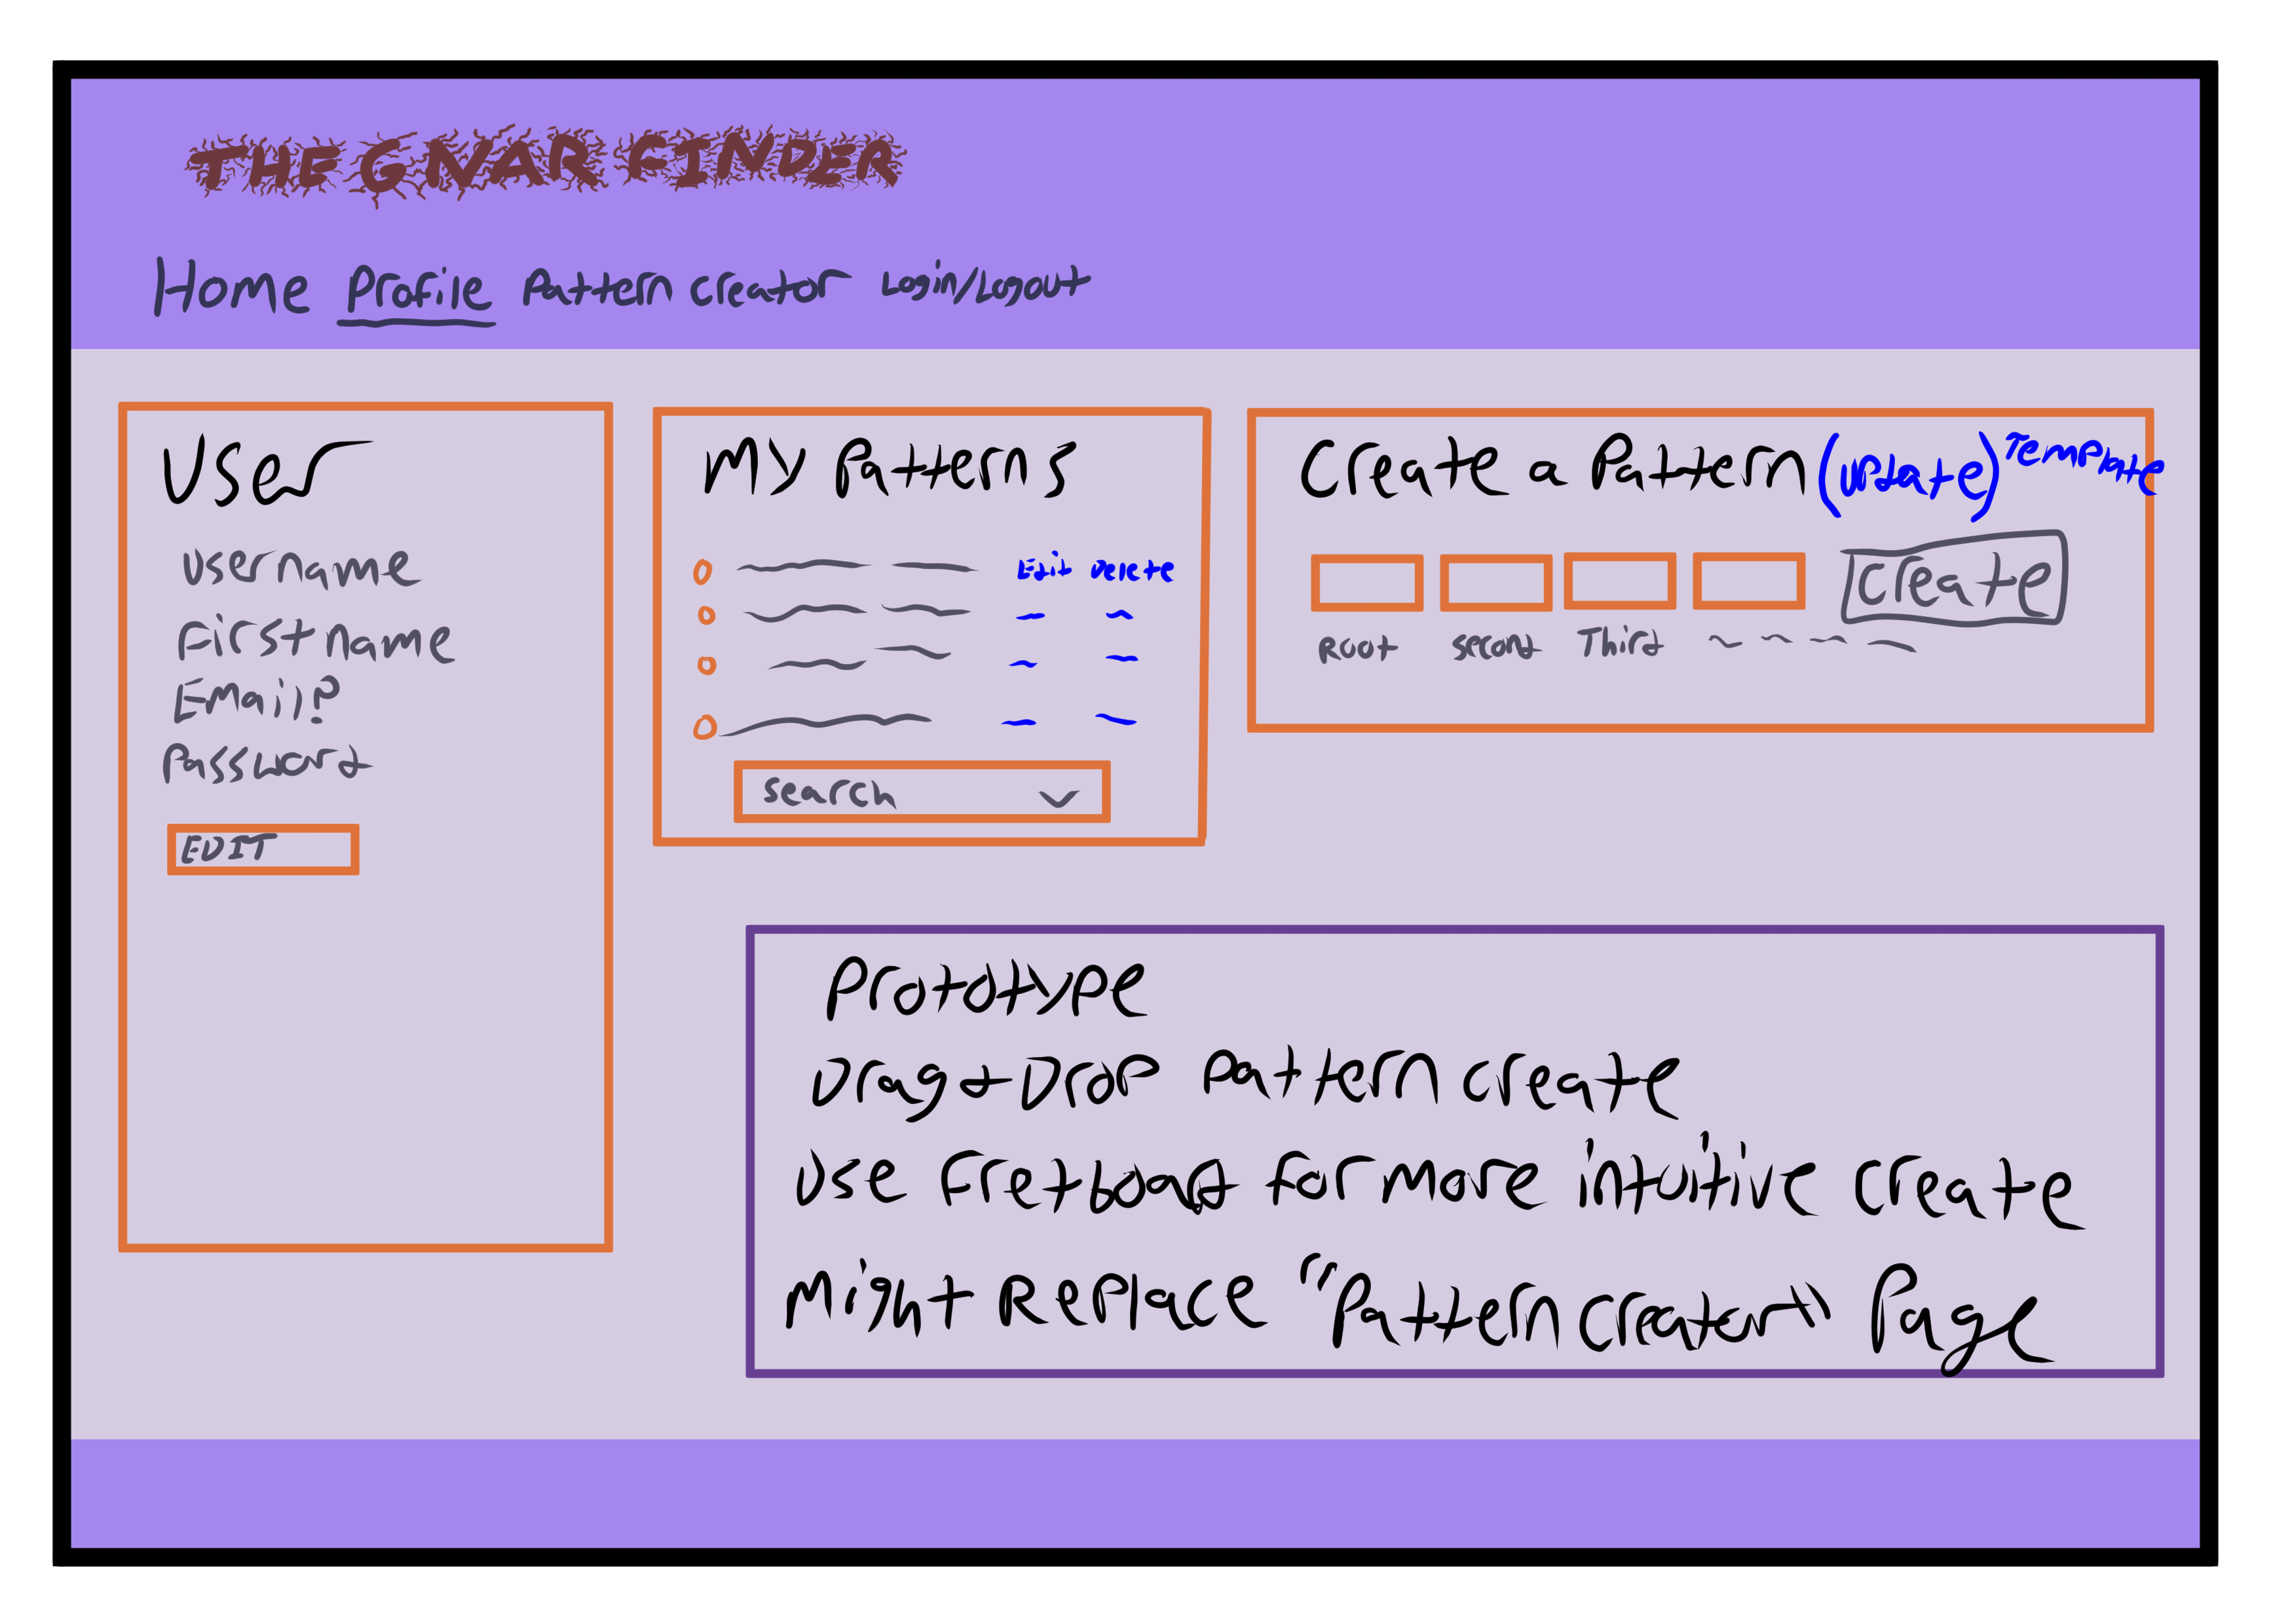 THE GNAR FINDER
Home Profile Pattern Creator Login/Logout
User
Username
First name
Email?
Password
EDIT
My Patterns
Edit Delete
Search
Create a Pattern (update) Template
Create
Root Second Third
Prototype
Drag + Drop Pattern Create
Use Fretboard for more intuitive create
Might Replace "Pattern Creator" Page